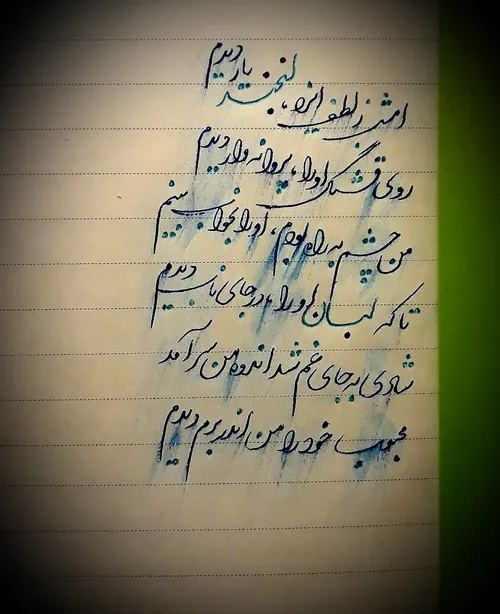 امشب ز لطف ایزد، لبخند یار دیدم
روی قشنگ او را، پروانه وار دیدم
من چشم به راه بودم، او را بخواب بینم
تا که لبان او را، در جای ناب دیدم
شادی به جای غم شد اندوه من سر آمد
محبوب خود را من اندر برم دیدم